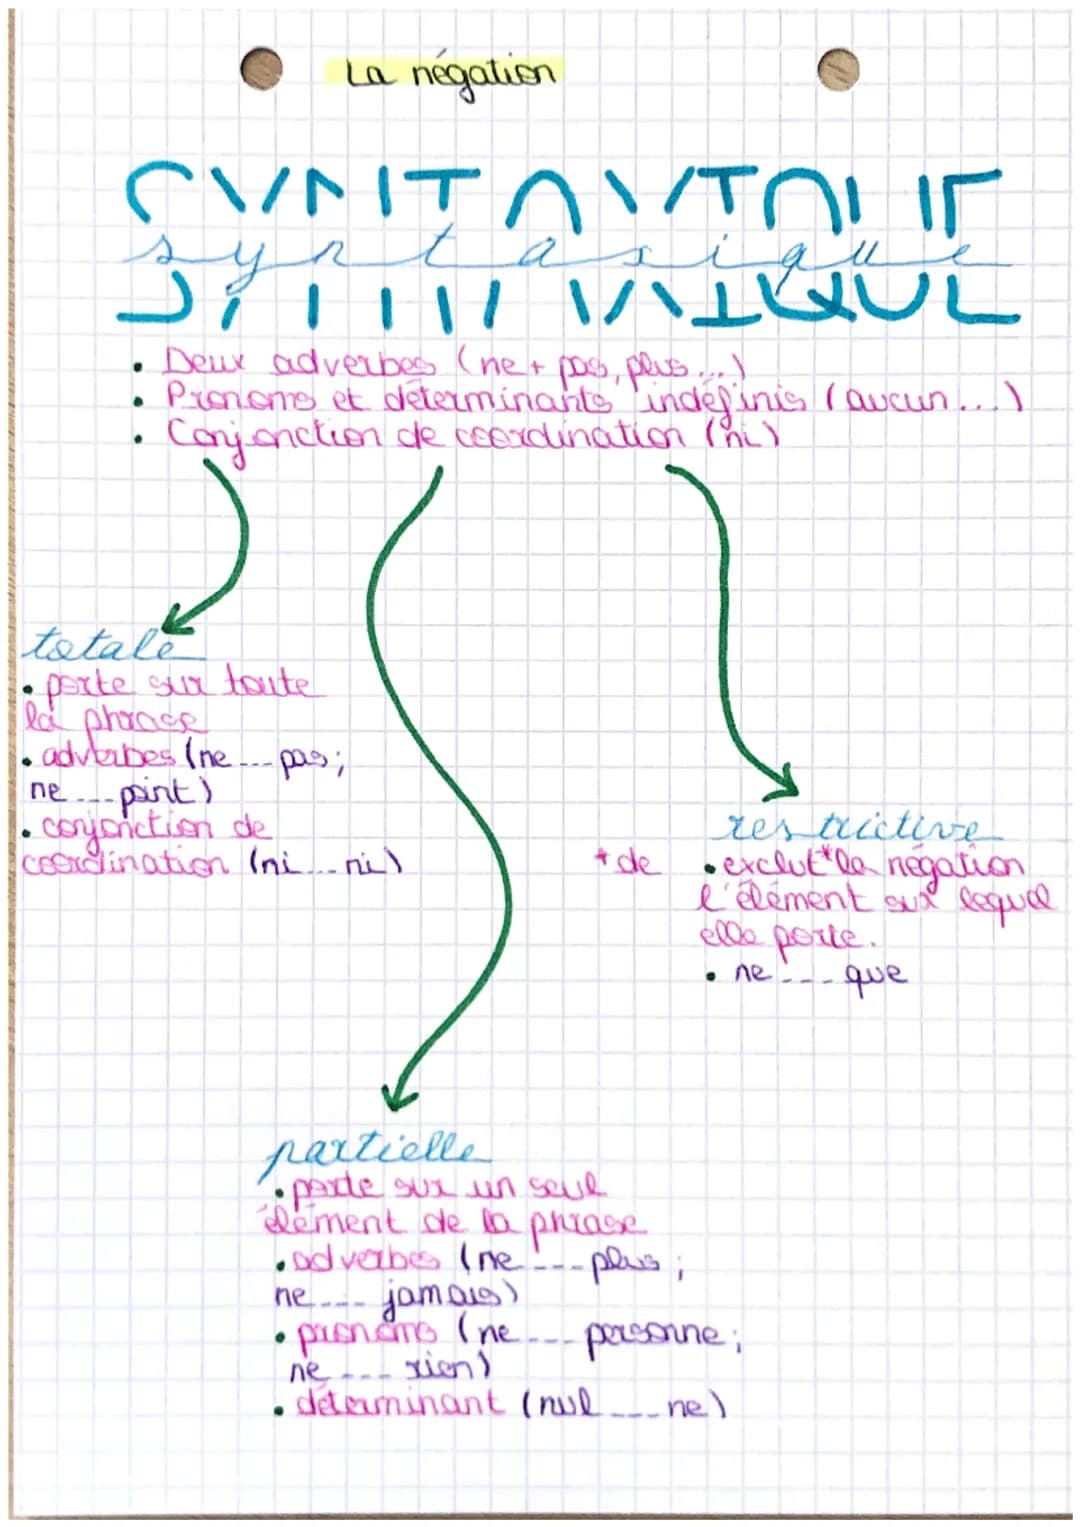 La négation
SYNTAXIQUE
syntaxique
• Deux adverbes (ne + pas, plus...)
• Pronoms et déterminants indéfinis (aucun...)
• Conjonction de coordination (ni)
totale
• porte sur toute
la phrase
• adverbes (ne --- pas ;
ne --- point)
• conjonction de
coordination (ni --- ni)
restrictive
*de • exclut* la négation
l'élément sur lequel
elle porte.
• ne --- que
partielle
• porte sur un seul
élément de la phrase
• adverbes (ne --- plus ;
ne --- jamais)
• pronoms (ne --- personne ;
ne --- rien)
• déterminant (nul --- ne)